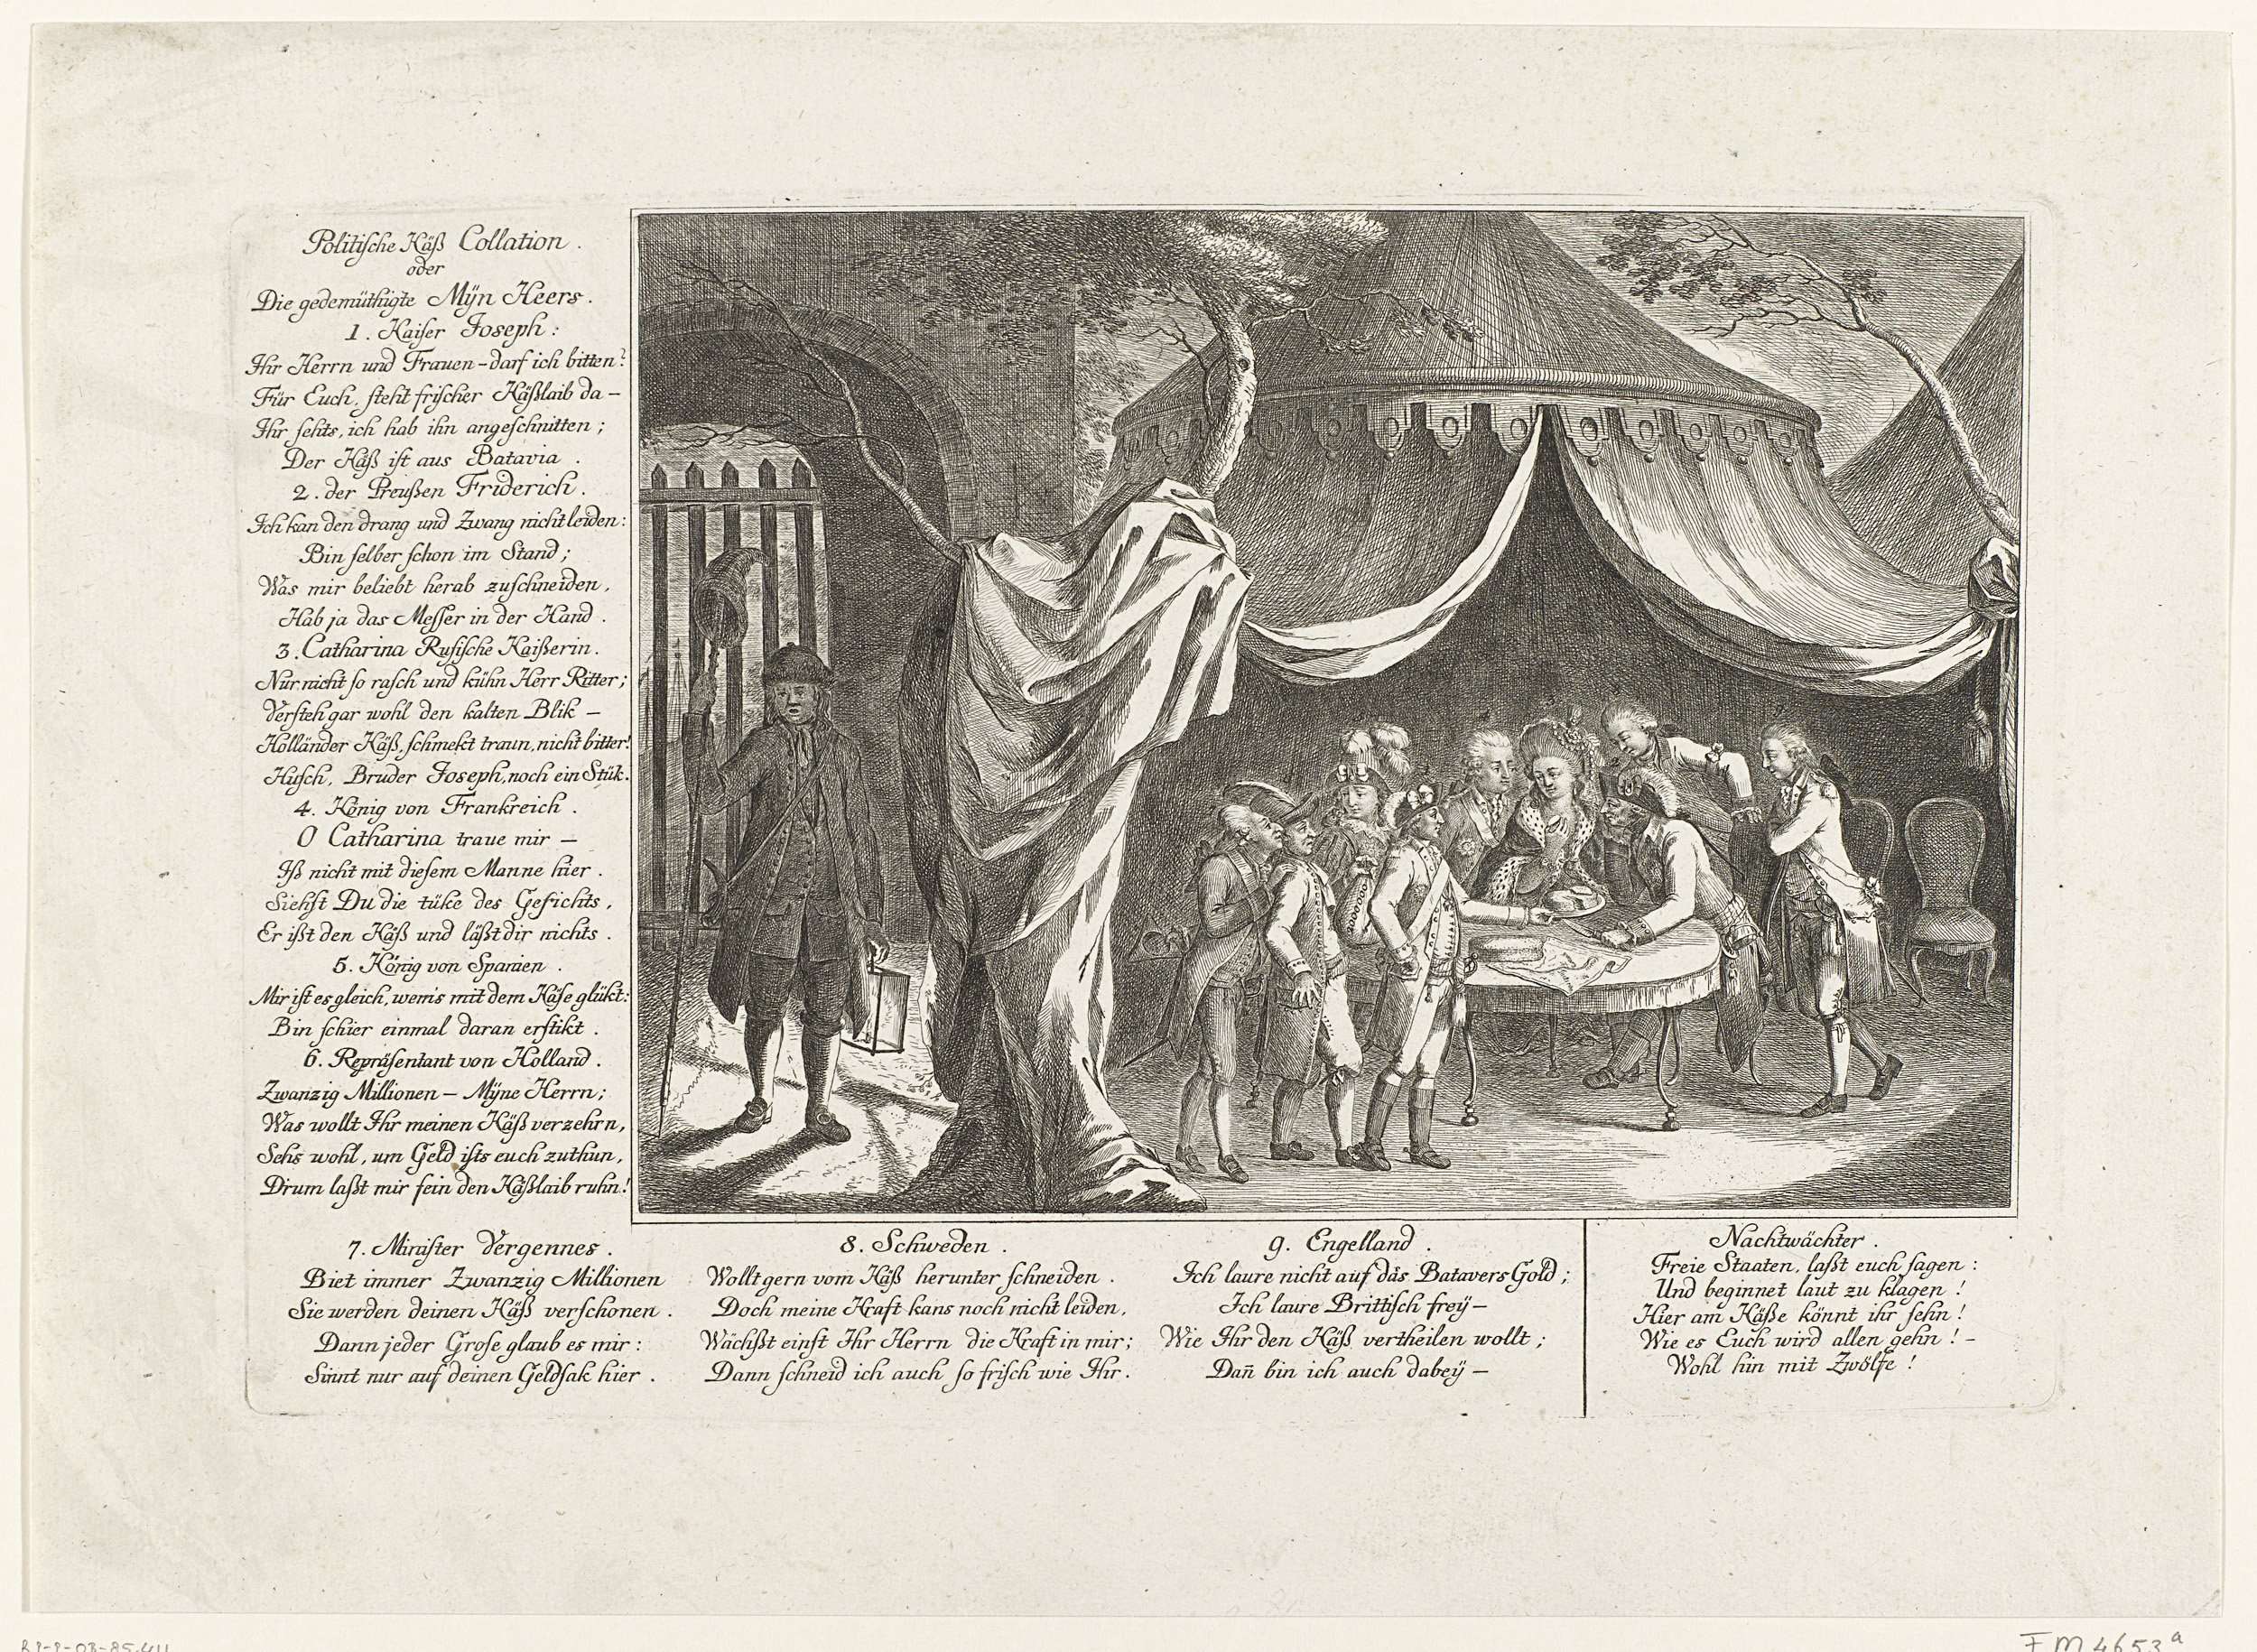 Politische Käß Collation.
oder
Die gedemüthigte Mÿn Heers.
1. Kaiser Joseph:
Ihr Herrn und Frauen – darf ich bitten?
Für Euch, steht frischer Käßlaib da –
Ihr sehts, ich hab ihn angeschnitten;
Der Käß ist aus Batavia.
2. der Preußen Friderich.
Ich kan den drang und Zwang nicht leiden:
Bin selber schon im Stand;
Was mir beliebt herab zuschneiden,
Hab ja das Messer in der Hand.
3. Catharina Rusische Kaißerin.
Nur nicht so rasch und kühn Herr Ritter;
Versteh gar wohl den kalten Blik –
Holländer Käß, schmekt traun, nicht bitter!
Husch, Bruder Joseph, noch ein Stük.
4. König von Frankreich.
O Catharina traue mir –
Iß nicht mit diesem Manne hier.
Siehst Du die tüke des Gesichts,
Er ißt den Käß und läßt dir nichts.
5. König von Spanien.
Mir ist es gleich, wem's mit dem Käse glükt:
Bin schier einmal daran erstikt.
6. Repräsentant von Holland.
Zwanzig Millionen – Mÿne Herrn;
Was wollt Ihr meinen Käß verzehrn,
Sehs wohl, um Geld ists euch zuthun,
Drum laßt mir fein den Käßlaib ruhn!
7. Minister Vergennes.
Biet immer Zwanzig Millionen
Sie werden deinen Käß verschonen.
Dann jeder Grose glaub es mir:
Sinnt nur auf deinen Geldsak hier.
8. Schweden.
Wollt gern vom Käß herunter schneiden.
Doch meine Kraft kans noch nicht leiden,
Wächßt einst Ihr Herrn die Kraft in mir;
Dann schneid ich auch so frisch wie Ihr.
9. Engelland.
Ich laure nicht auf das Batavers Gold;
Ich laure Brittisch freÿ –
Wie Ihr den Käß vertheilen wollt;
Dan̄ bin ich auch dabeÿ –
Nachtwächter.
Freie Staaten, laßt euch sagen:
Und beginnet laut zu klagen!
Hier am Käße könnt ihr sehn!
Wie es Euch wird allen gehn! –
Wohl hin mit Zwölfe!
RP-P-OB-85.411
FM 4653a